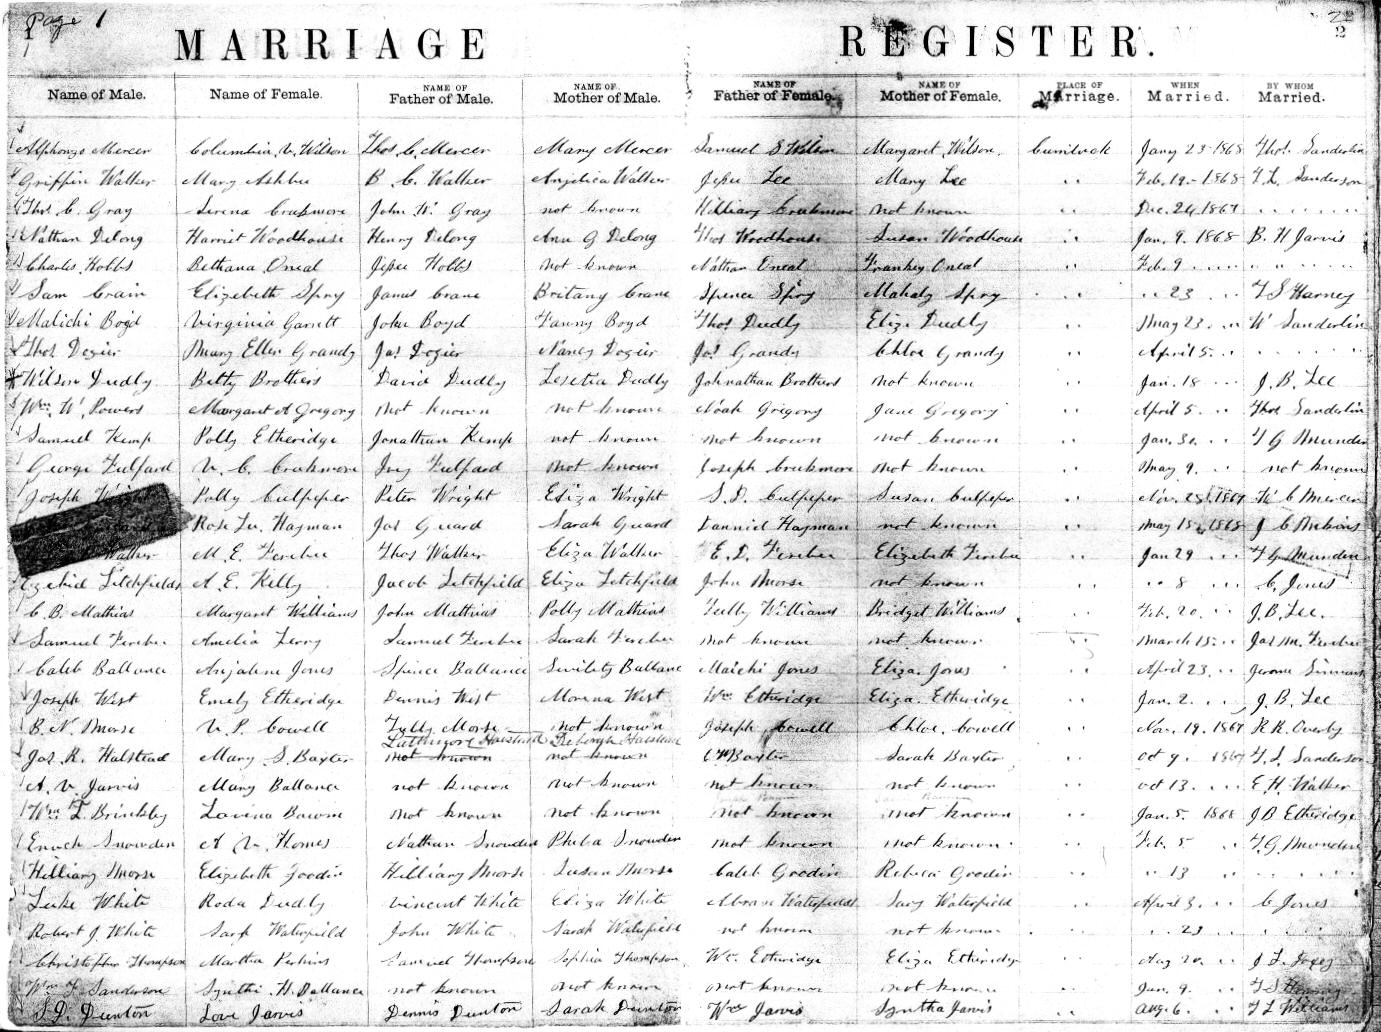 Page 1
1
MARRIAGE REGISTER.
2
Name of Male. Name of Female. NAME OF Father of Male. NAME OF Mother of Male. NAME OF Father of Female. NAME OF Mother of Female. PLACE OF Marriage. WHEN Married. BY WHOM Married.
Alphonzo Mercer Columbia V. Wilson Thos C. Mercer Mary Mercer Samuel S Wilson Margaret Wilson Currituck Jany 23 1868 Thos. Sanderlin
Griffin Walker Mary Ashbee B. C. Walker Angelica Walker Jesse Lee Mary Lee " Feb. 19 - 1868 T. L. Sanderson
Thos. C. Gray Serena Crukmore John W. Gray not known William Crukmore not known " Dec. 24 1867 " " " "
Nathan Delong Harriet Woodhouse Henry Delong Ann G Delong Thos Woodhouse Susan Woodhouse " Jan. 9. 1868 B. H Jarvis
Charles Hobbs Bethana Oneal Jesse Hobbs not known Nathan Oneal Frankey Oneal " Feb. 9 " " " " "
Sam Crain Elizabeth Spry James Crane Britany Crane Spence Spry Mahaly Spry " " 23 " T S Harney
Malichi Boyd Virginia Garrett John Boyd Fanny Boyd Thos Dudly Eliza Dudly " May 23. " W Sanderlin
Thos Dozier Mary Ellen Grandy Jas Dozier Nancy Dozier Jos Grandy Chloe Grandy " April 5. " " " "
Wilson Dudly Betty Brothers David Dudly Lesetia Dudly Johnathan Brothers not known " Jan. 18 " J. B. Lee
Wm. W. Powers Margaret A Gregory not known not known Noah Gregory Jane Gregory " April 5. " Thos Sanderlin
Samuel Kemp Polly Etheridge Jonathan Kemp not known not known not known " Jan. 30. " T G Munden
George Fulford V. C. Crukmore Ivy Fulford not known Joseph Crukmore not known " May 9. " not known
Joseph Polly Culpeper Peter Wright Eliza Wright S. D. Culpeper Susan Culpeper " Nov. 25 1867 W C Mercer
Rose Lee Hayman Jos Guard Sarah Guard Dannid Hayman not known " May 15, 1868 J C
Walker M. E. Ferebee Thos Walker Eliza Walker E. D. Ferebee Elizabeth Ferebee " Jan 29 " T G Munden
Ezekiel Litchfields A. E. Kelly Jacob Litchfield Eliza Litchfield John Morse not known " " 8 " C. Jones
C. B. Mathias Margaret Williams John Mathias Polly Mathias Tully Williams Bridget Williams " Feb. 20. " J. B. Lee.
Samuel Ferebee Amelia Ferry Samuel Ferebee Sarah Ferebee not known not known " March 15. " Jas M. Ferebee
Caleb Ballance Anjaline Jones Spence Ballance Maichi Jones Eliza Jones " April 23. " Jerome
Joseph West Emely Etheridge Dennis West Morena West Wm Etheridge Eliza Etheridge " Jan. 2. " J. B. Lee
B. N. Morse V. P. Cowell Tully Morse not known Joseph Cowell Chloe Cowell " Nov. 19. 1867 R R. Overby
Latimore Halstead Deborah Halstead
Jas. R. Halstead Mary S. Baxter not known not known Baxter Sarah Baxter " Oct 9. 1867 T. L. Sanderson
A. V. Jarvis Mary Ballance not known not known not known not known " Oct 13. " E. H. Walker
Wm T. Brinkley Lavina Bowm not known not known not known not known " Jan. 5. 1868 J B Etheridge
Enoch Snowden A V. Homes Nathan Snowden Pheba Snowden not known not known " Feb. 5 " T. G. Munden
Hilliary Morse Elizabeth Goodin Hilliary Morse Susan Morse Caleb Goodin Rebeca Goodin " " 13 " " "
Luke White Roda Dudly Vincent White Eliza White Abram Waterfields Sary Waterfield " April 3. " C Jones
Robert J. White Sarah Waterfield John White Sarah Waterfield not known not known " " 23 " " "
Christopher Thompson Martha Perkins Samuel Thompson Sophia Thompson Wm. Etheridge Eliza Etheridge " Aug 20. "
Wm. T. Sanderson Synthi H. Ballance not known not known not known not known " Jan. 9. " T S
S. D. Dunton Love Jarvis Dennis Dunton Sarah Dunton Wm Jarvis Syntha Jarvis " Aug. 6. " T L Williams